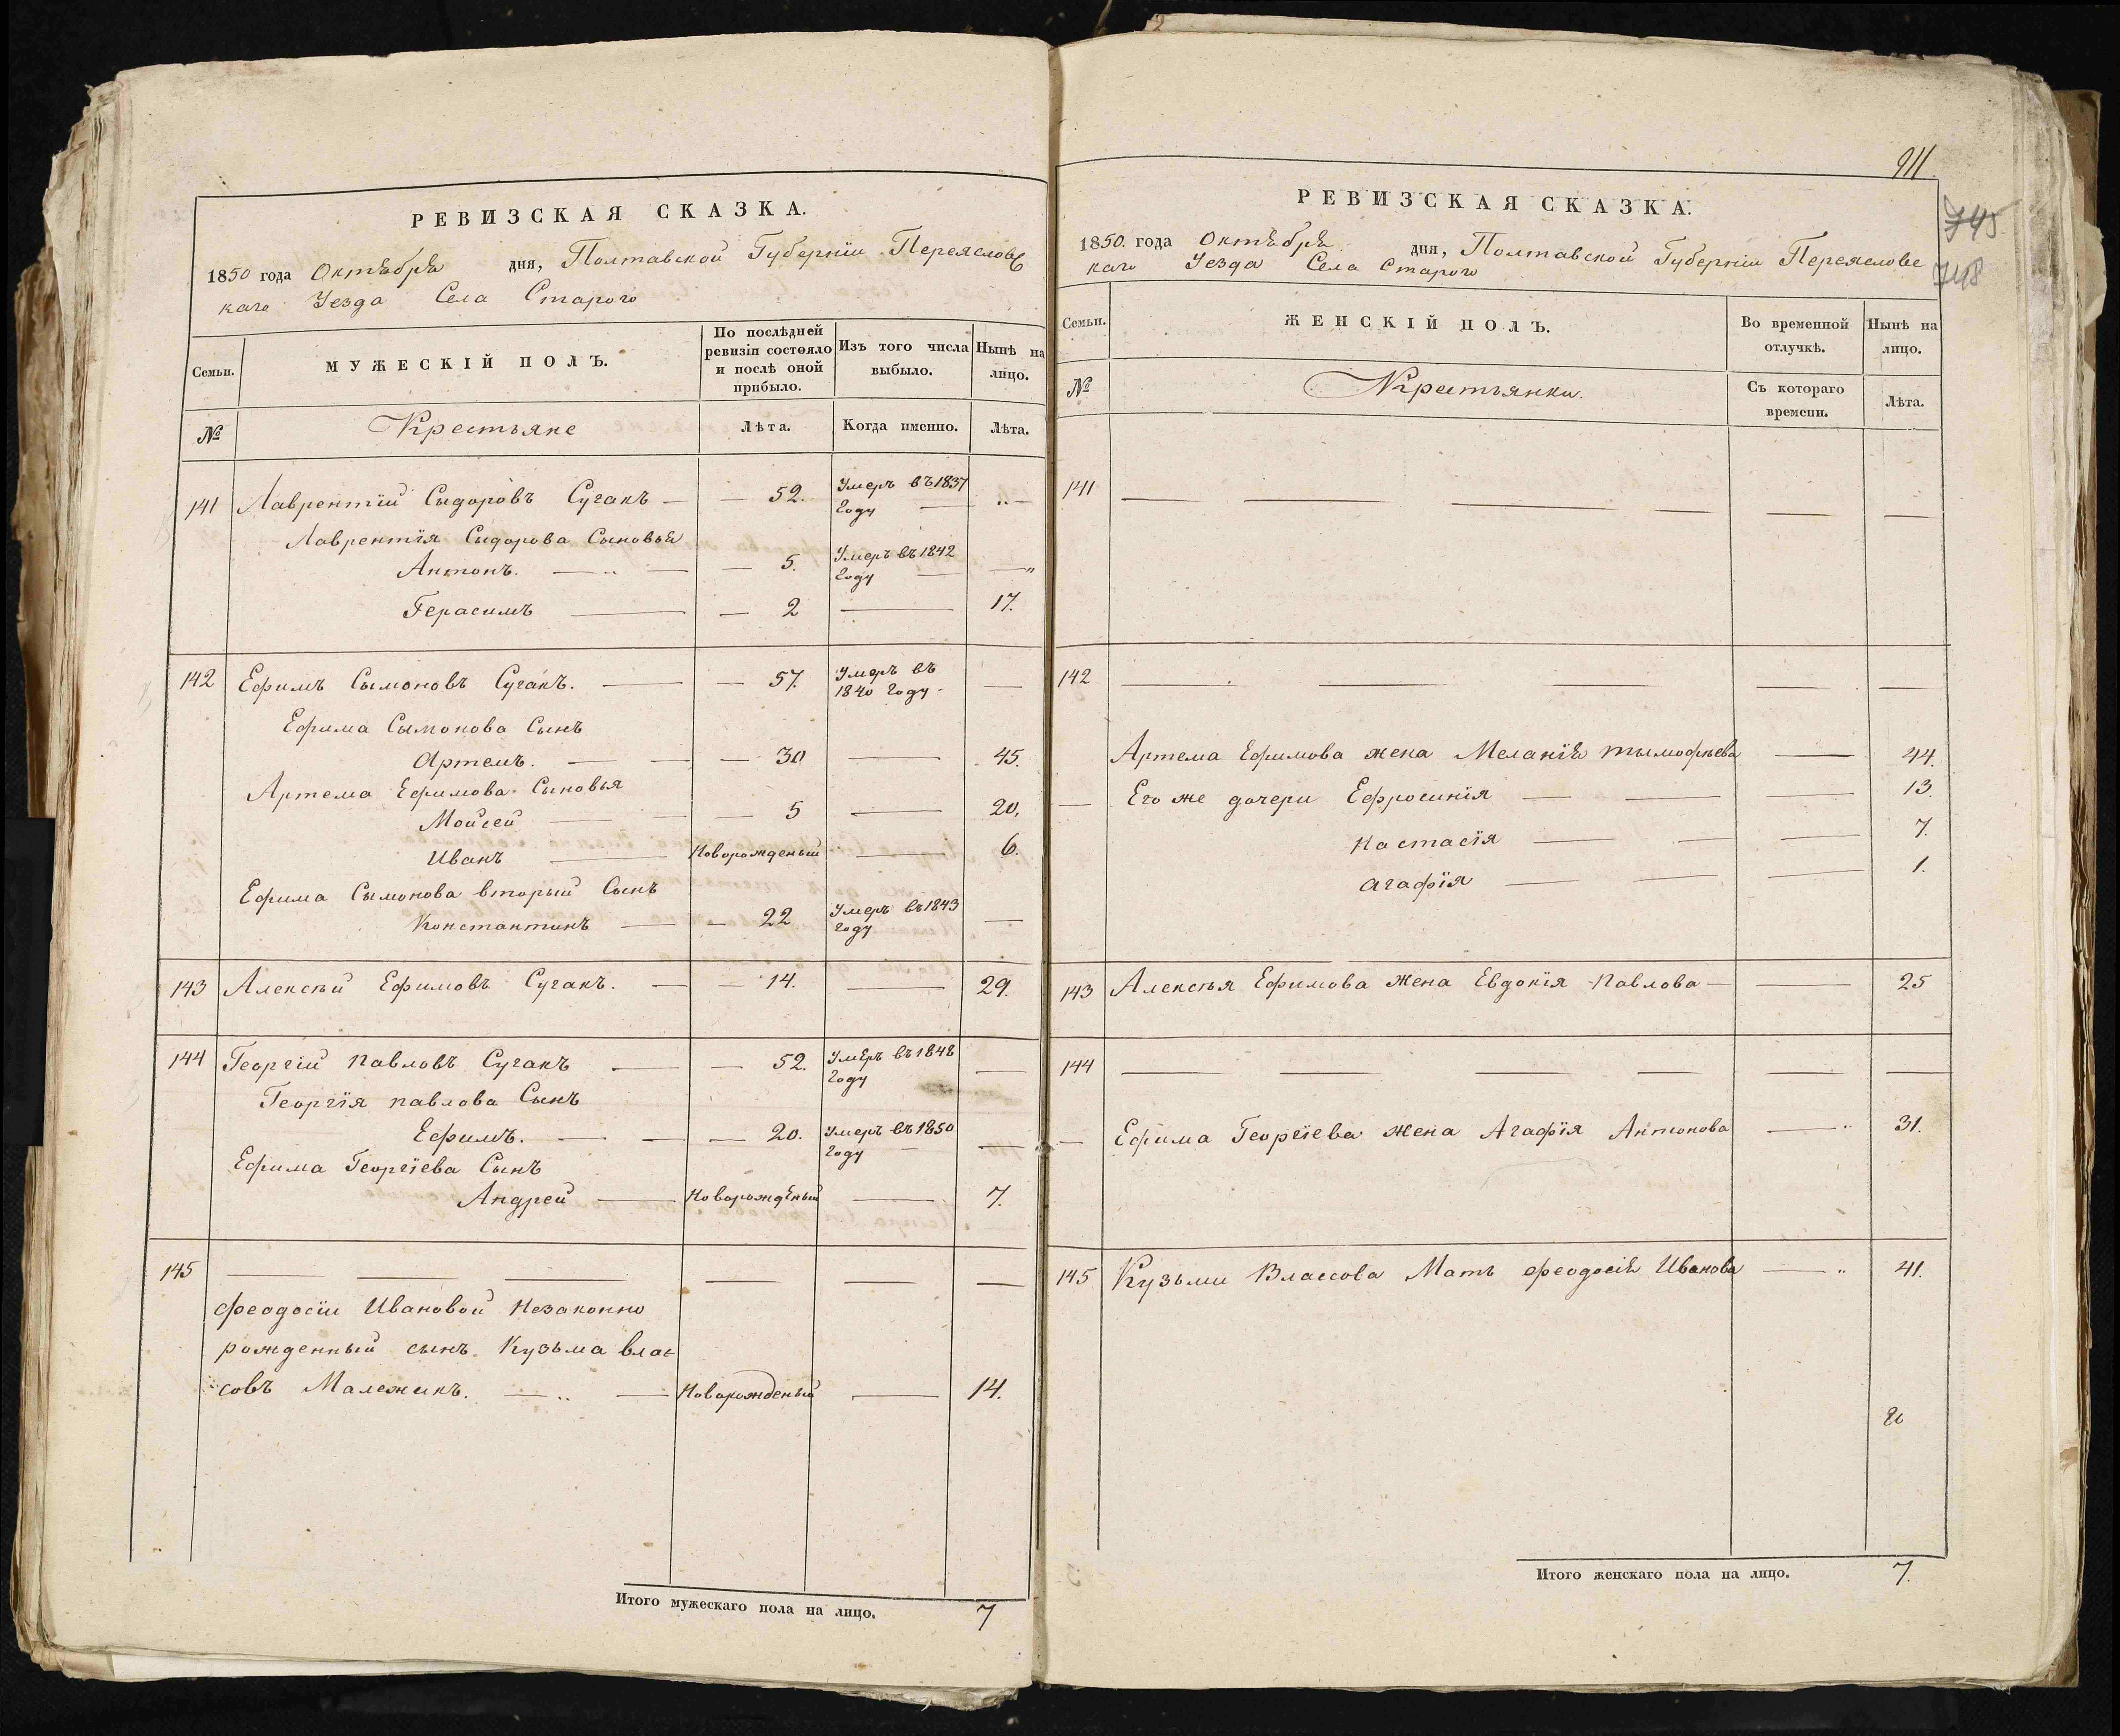 РЕВИЗСКАЯ СКАЗКА.
1850 года Октября дня, Полтавской Губерніи Переяслов
каго Уезда Села Старого
Семьи.
МУЖЕСКІЙ ПОЛЪ.
По послѣдней ревизіи состояло и послѣ оной прибыло.
Изъ того числа выбыло.
Нынѣ на лицо.
№
Крестьяне
Лѣта.
Когда именно.
Лѣта.
141 Лаврентій Сыдоровъ Сугакъ — — 52. Умеръ въ 1837 году — „ —
Лаврентія Сыдорова Сыновья
Антонъ. — „ — — 5. Умеръ въ 1842 году — — „
Герасимъ — — 2 — 17.
142 Ефимъ Сымоновъ Сугакъ. — — 57. Умеръ въ 1840 году —
Ефима Сымонова Сынъ
Артемъ. — — — 30 — 45.
Артема Ефимова Сыновья
Мойсей — — — 5 — 20.
Иванъ — Новорожденый — 6.
Ефима Сымонова вторый Сынъ
Константинъ — — 22 Умеръ въ 1843 году —
143 Алексѣй Ефимовъ Сугакъ. — — 14. — 29.
144 Георгій Павловъ Сугакъ — — 52. Умеръ въ 1848 году —
Георгія павлова Сынъ
Ефимъ. — — — 20. Умеръ въ 1850 году — —
Ефима Георгіева Сынъ
Андрей — Новорожденый — 7.
145 — — — — — —
Феодосіи Ивановой Незаконно
рожденный сынъ Кузьма влас
совъ Малежикъ. — „ — Новорожденый — 14.
Итого мужескаго пола на лицо. 7
911
745
748
РЕВИЗСКАЯ СКАЗКА.
1850. года Октября дня, Полтавской Губерніи Переяслове
каго Уезда Села Старого
Семьи.
ЖЕНСКІЙ ПОЛЪ.
Во временной отлучкѣ.
Нынѣ на лицо.
№
Крестьянки.
Съ котораго времени.
Лѣта.
141 — — — — — —
142 — — — — —
Артема Ефимова жена Меланія тымофѣева — 44.
— Его же дочери Ефросинія — — — 13.
Настасія — — — 7.
агафія — — — 1.
143 Алексѣя Ефимова Жена Евдокія Павлова — — 25
144 — — — — — —
— Ефима Георгіева Жена Агафія Антонова — „ 31.
145 Кузьми Влассова Мать Феодосія Иванова — „ 41.
Итого женскаго пола на лицо. 7.